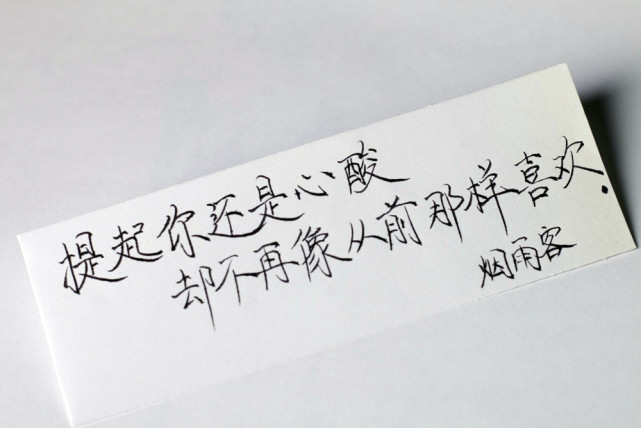 提起你还是心酸
却不再像从前那样喜欢.
烟雨客